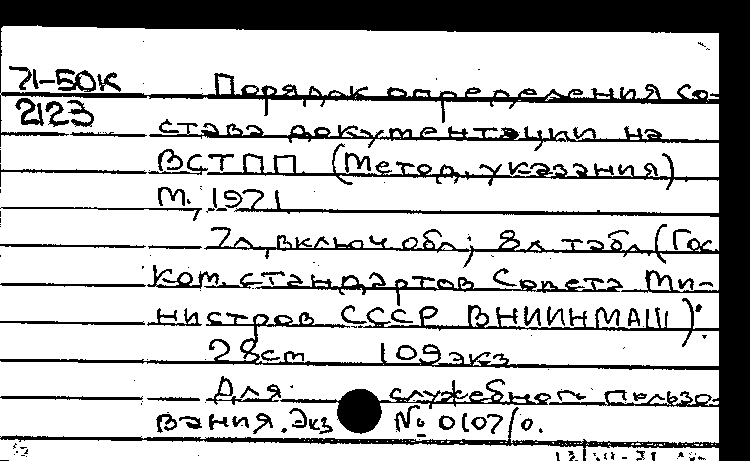 71-50к Порядок определения со-
2123 става документации на
ВСТПП. (Метод. указания)
М., 1971
7л, включ обл; 8л табл (Гос.
Ком. стандартов Совета Ми-
нистров СССР ВНИИНМАШ).
28см 109экз
Для служебного пользо-
вания. Экз № 0107/0.